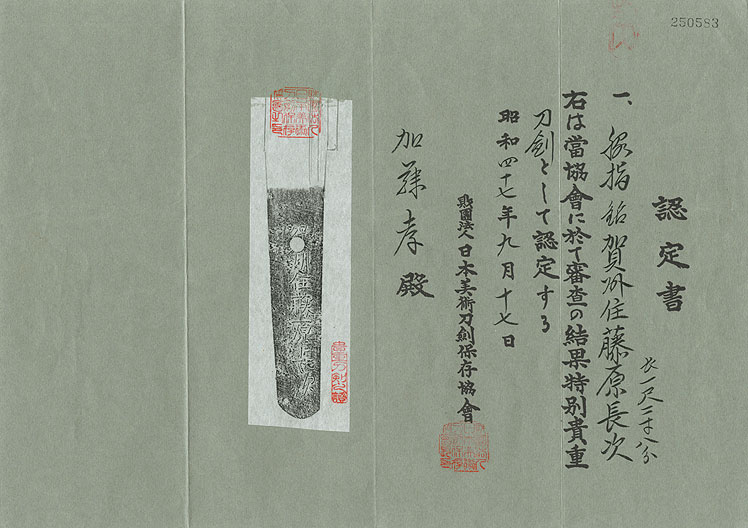 250583
認定書
一、脇指 銘賀州住藤原長次
長一尺三寸八分
右は當協會に於て審査の結果特別貴重
刀劍として認定する
昭和四十七年九月十七日
財團法人日本美術刀劍保存協會
加藤孝殿